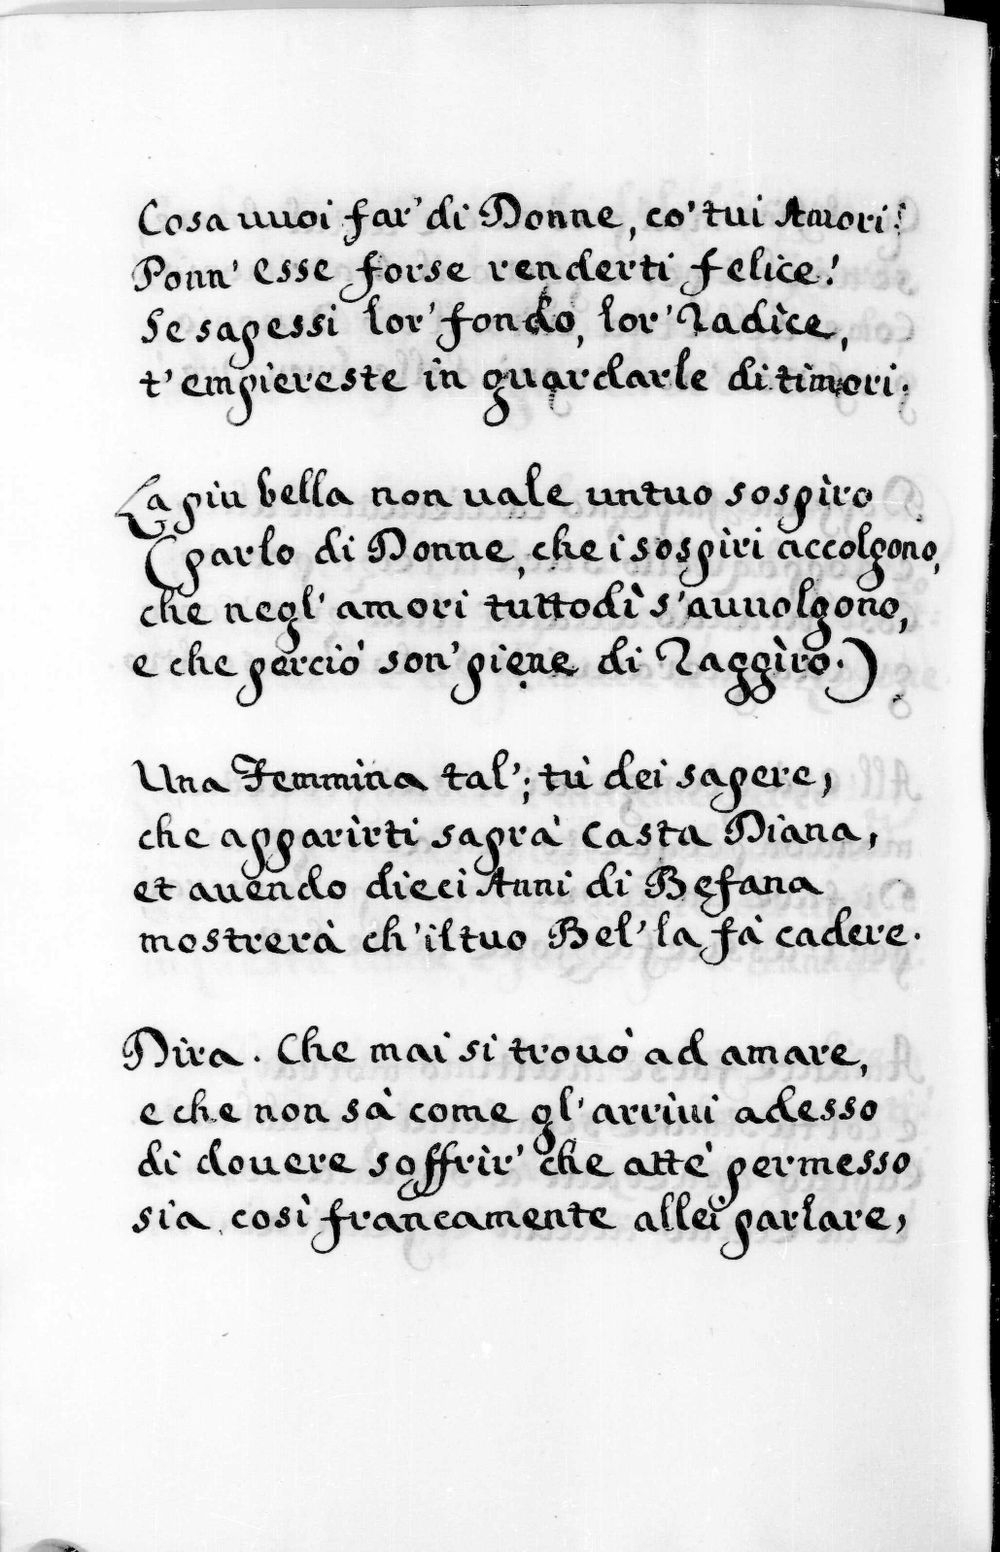 Cosa uuoi far' di Donne, co' tui Amori!
Ponn' esse forse renderti felice!
Se sapessi lor' fondo, lor' Radìce,
t' empiereste in guardarle di timori.
La piu bella non uale un tuo sospìro
(parlo di Donne, che i sospiri accolgono,
che negl' amori tuttodì s'auuolgono,
e che perciò son' piene di Raggìro.)
Una Femmìna tal'; tù dei sapere,
che apparìrti saprà Casta Diana,
et auendo dieci Anni di Befana
mostrerà ch'il tuo Bel' la fà cadere.
Dira. Che mai si trouò ad amare,
e che non sà come gl' arrìui adesso
di douere soffrìr' che attè permesso
sia così francamente allei parlare,